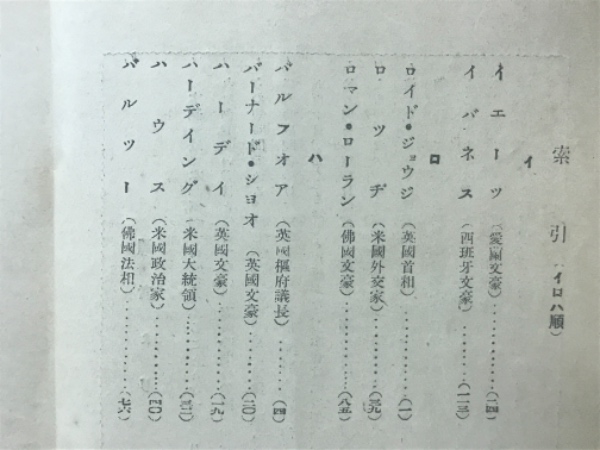 索引（イロハ順）
イ
イエーツ（愛蘭文豪）…………（二四）
イバネス（西班牙文豪）…………（一一三）
ロ
ロイド・ジョウジ（英國首相）…………（一）
ロッヂ（米國外交家）…………（三九）
ロマン・ローラン（佛國文豪）…………（八五）
ハ
バルフオア（英國樞府議長）…………（四）
バーナード・シヨオ（英國文豪）…………（二〇）
ハーデイ（英國文豪）…………（一九）
ハーデイング（米國大統領）…………（三一）
ハウス（米國政治家）…………（四〇）
バルツー（佛國法相）…………（七六）